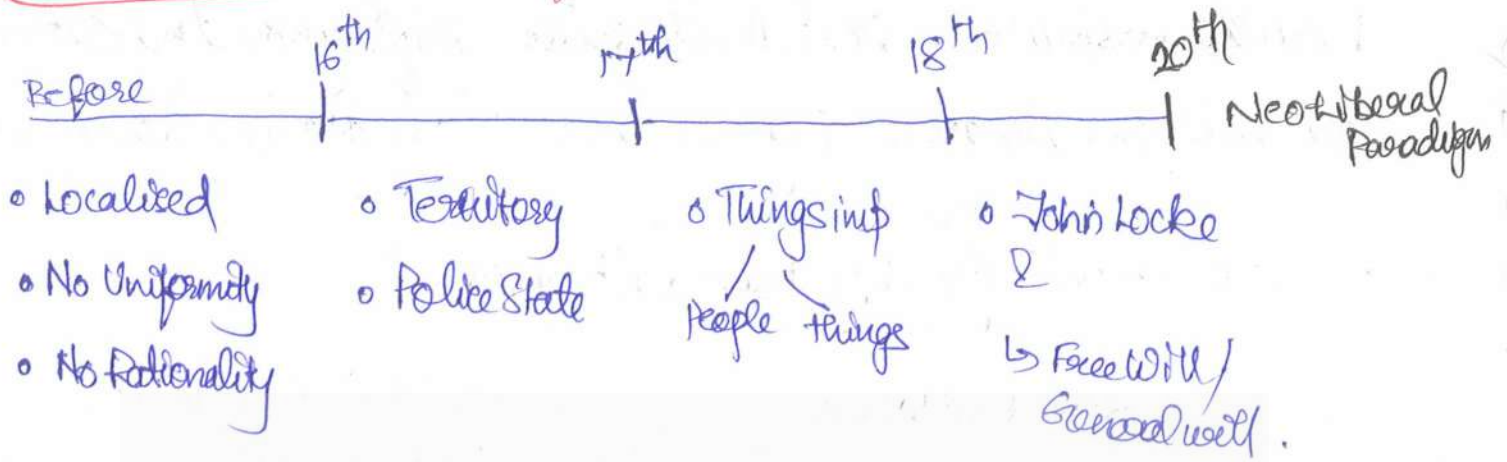 16th 17th 18th 20th
Before
Neo Liberal
Paradigm
• Localised
• No Uniformity
• No Rationality
• Territory
• Police State
• Things imp
People things
• John Locke
&
↳ Free Will/
General will.